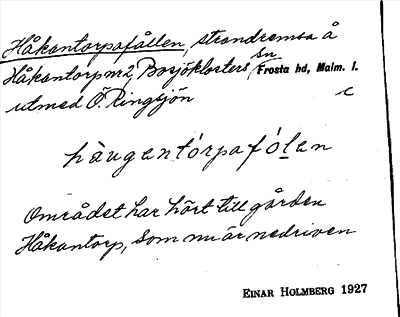 Håkantorpafållen, strandremsa å
Håkantorp nr 2, Bosjöklosters sn Frosta hd, Malm. l.
utmed Ö. Ringsjön c
hàugentórpafólen
Området har hört till gården
Håkantorp, som nu är nedriven
EINAR HOLMBERG 1927